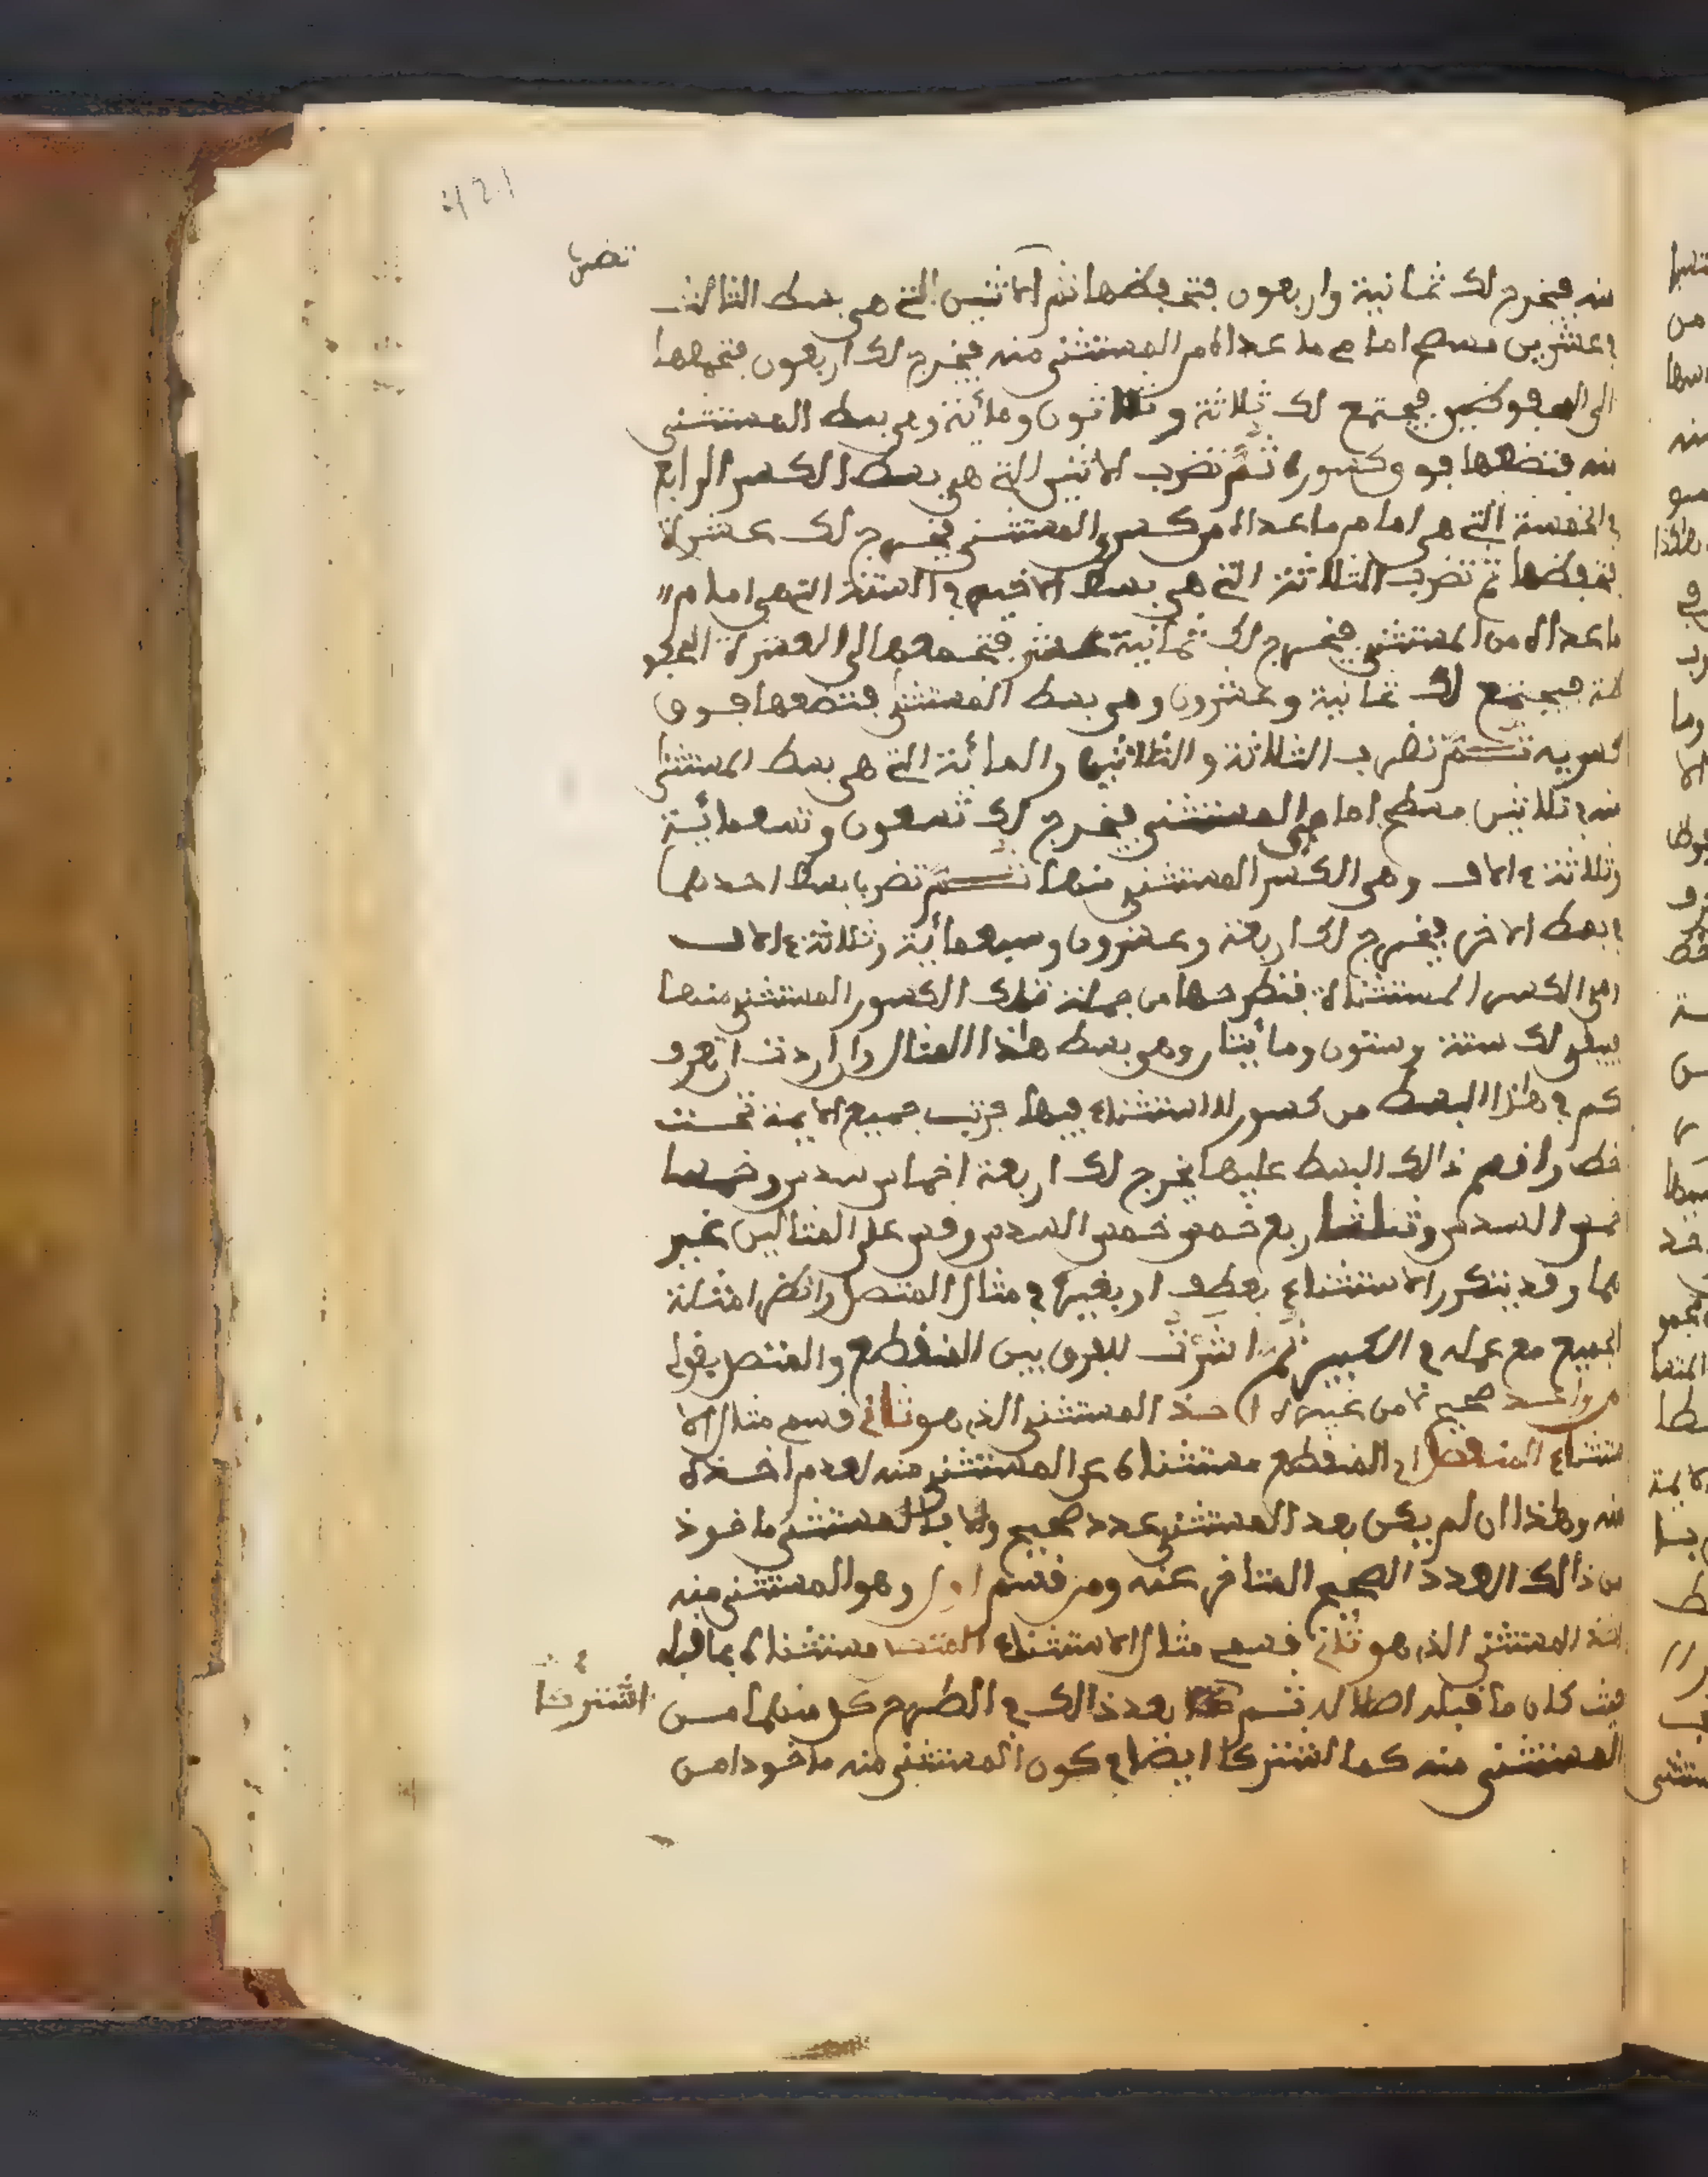 421
تضرب
منه فيخرج لك ثمانية واربعون فتحفظها ثم الاثنين التي هي بسط الثالث
في عشرين مسطح امام ما عداه من المستثنى منه فيخرج لك اربعون فتجمعها
الى المحفوظين فيجتمع لك ثلاثة وثلاثون ومائة وهي بسط المستثنى
منه فتضعها فوق كسوره ثم تضرب الاثنين التي هي بسط الكسر الرابع
في الخمسة التي هي امام ما عداه من كسري المستثنى فيخرج لك عشرة
فتحفظها ثم تضرب الثلاثة التي هي بسط الاخير في الستة التي هي امام
ما عداه من المستثنى فيخرج لك ثمانية عشر فتجمعها الى العشرة المحفو
ظة فيجتمع لك ثمانية وعشرون وهي بسط المستثنى فتضعها فوق
كسريه ثم تضرب الثلاثة والثلاثين والمائة التي هي بسط المستثنى
منه في ثلاثين مسطح امامي المستثنى فيخرج لك تسعون وتسعمائة
وثلاثة ءالاف وهي الكسر المستثنى منها ثم تضرب بسط احدهما
في بسط الاخر فيخرج لك اربعة وعشرون وسبعمائة وثلاثة ءالاف
وهي الكسر المستثناة فتطرحها من جملة تلك الكسور المستثنى منها
فيبقى لك ستة وستون ومائتان وهي بسط هذا المثال وان اردت ان تعرف
كم في هذا البسط من كسور لا استثناء فيها فرتب جميع الايمة تحت
خط واقسم ذالك البسط عليها يخرج لك اربعة اخماس سدس وخمسا
خمس السدس وثلثا ربع خمس خمس السدس وقس على المثالين غير
هما وقد يتكرر الاستثناء بعطف او بغيره في مثال المتصل وانظر امثلة
الجميع مع عمله في الكبير ثم اشرت للفرق بين المنقطع والمتصل بقولي
من واحد صحيح لا من غيره اخذ المستثنى الذي هو ثاني قسمي مثال الا
ستثناء المنفصل اي المنقطع مستثناه عن المستثنى منه لعدم اخذه
منه وهذا ان لم يكن بعد المستثنى عدد صحيح والا فالمستثنى ماخوذ
من ذالك العدد الصحيح المتاخر عنه ومن قسم اول وهو المستثنى منه
اخذ المستثنى الذي هو ثاني قسمي مثال الاستثناء المتصل مستثناه بما قبله
حيث كان ما قبله اصلا له ثم بعد ذالك في الطرح كل منهما من
اشتركا
المستثنى منه كما اشتركا ايضا في كون المستثنى منه ماخوذا من